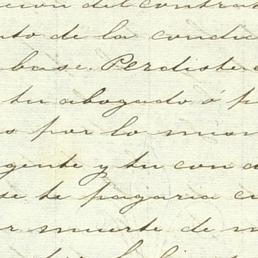 cion del contrat
nto de la condic
base. Perdiste
tu abogado ó p
s por lo mis
gente y tu con
se te pagaria c
r muerte de m